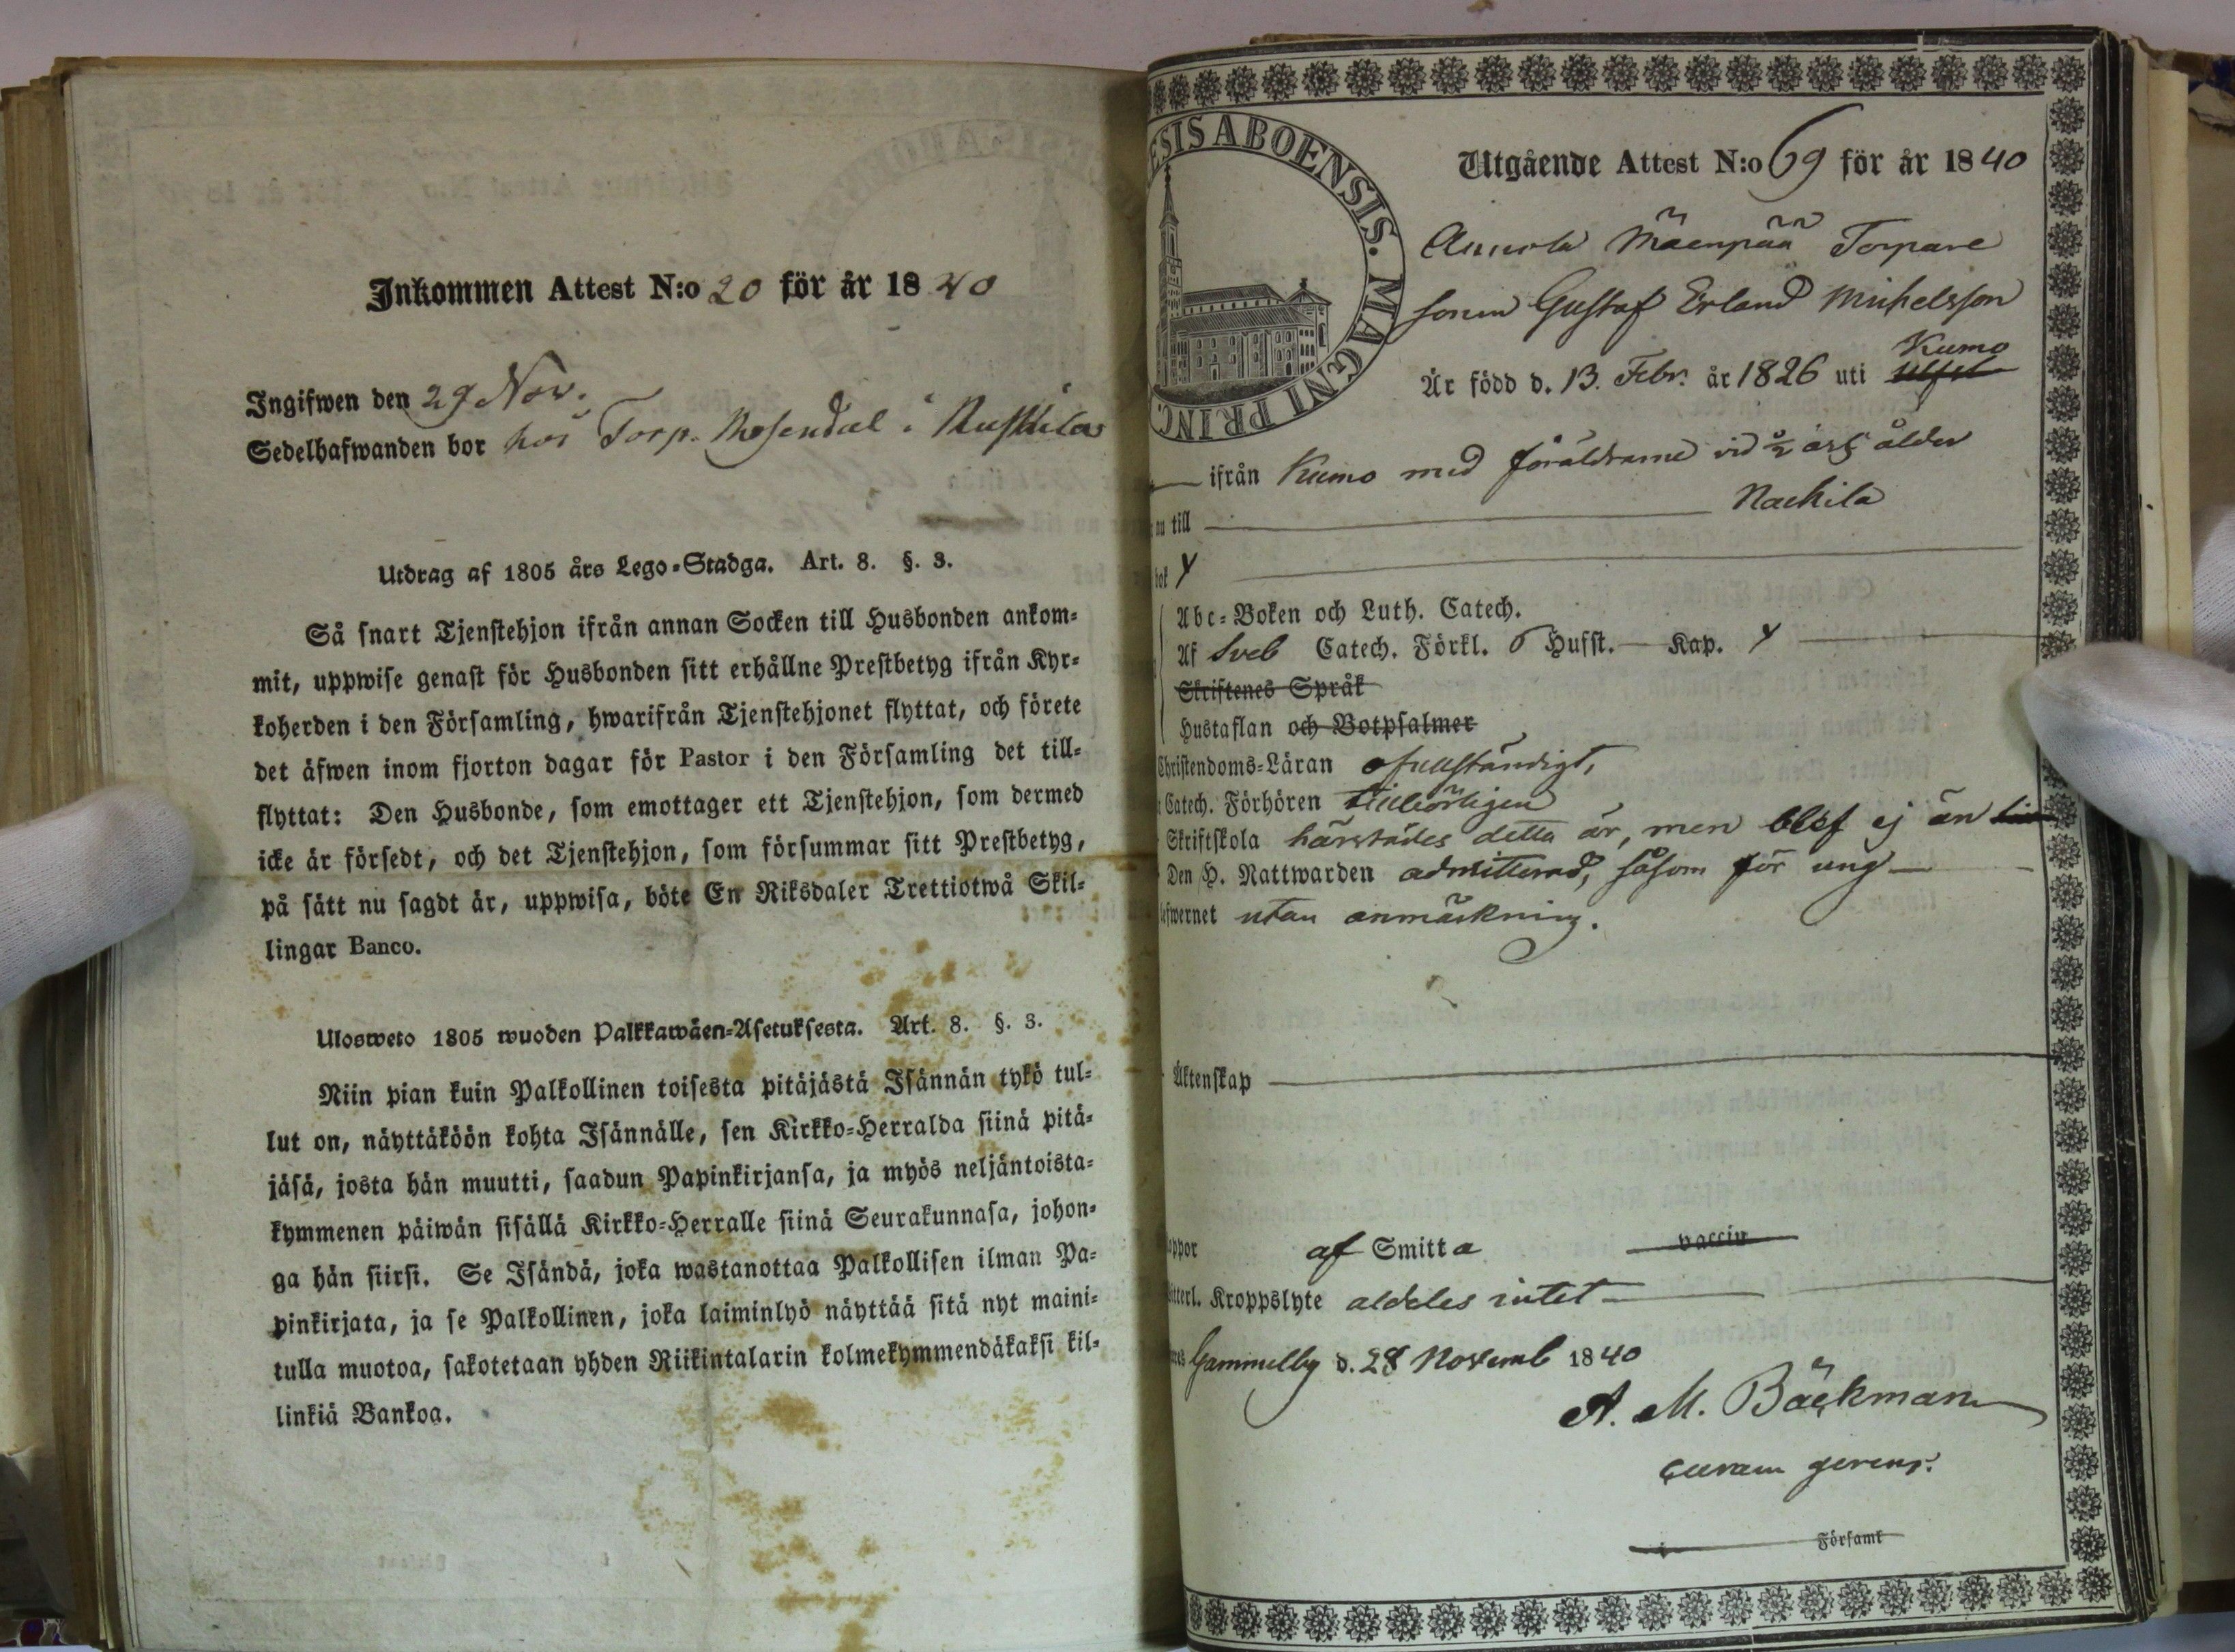 Inkommen Attest N:o 20 för år 1840
Ingifwen den 29 Nov.
Sedelhafwanden bor hos Torp. Rosendal i
Utdrag af 1805 års Lego-Stadga. Art. 8. §. 3.
Så snart Tjenstehjon ifrån annan Socken till Husbonden ankom-
mit, uppwise genast för Husbonden sitt erhållne Prestbetyg ifrån Kyr-
koherden i den Församling, hwarifrån Tjenstehjonet flyttat, och förete
det äfwen inom fjorton dagar för Pastor i den Församling det till-
flyttat: Den Husbonde, som emottager ett Tjenstehjon, som dermed
icke är försedt, och det Tjenstehjon, som försummar sitt Prestbetyg,
på sätt nu sagdt är, uppwisa, böte En Riksdaler Trettiotwå Skil-
lingar Banco.
Ulosweto 1805 wuoden Palkkawäen-Asetuksesta. Art. 8. §. 3.
Niin pian kuin Palkollinen toisesta pitäjästä Isännän tykö tul-
lut on, näyttäköön kohta Isännälle, sen Kirkko-Herralda siinä pitä-
jäsä, josta hän muutti, saadun Papinkirjansa, ja myös neljäntoista-
kymmenen päiwän sisällä Kirkko-Herralle siinä Seurakunnasa, johon-
ga hän siirsi. Se Isändä, joka wastanottaa Palkollisen ilman Pa-
pinkirjata, ja se Palkollinen, joka laiminlyö näyttää sitä nyt maini-
tulla muotoa, sakotetaan yhden Riikintalarin kolmekymmendäkaksi kil-
linkiä Bankoa.
ESIS ABOENSIS. MAGNI PRINC
Utgående Attest N:o 69 för år 1840
Annola Mäenpää Torpare
sonen Gustaf Erland Michelsson
Kumo
Är född d. 13. Febr. år 1826 uti
ifrån Kumo med föräldrarne vid ½ års ålder
nu till Nackila
bok
Abc-Boken och Luth. Catech.
Af Sveb Catech. Förkl. 6 Husst. Kap.
Skriftenes Språk
Hustaflan och Botpsalmer
Christendoms-Läran ofullständigt,
Catech. Förhören tillbörligen
Skriftskola härstädes detta år, men blef ej än
Den H. Nattwarden admitterad, såsom för ung
lefwernet utan anmärkning.
Äktenskap
oppor af Smitta vaccin
itterl. Kroppslyte aldeles intet
Gammelby d. 28 Novemb 1840
A. M. Bäckman
curam gerens.
i Församl